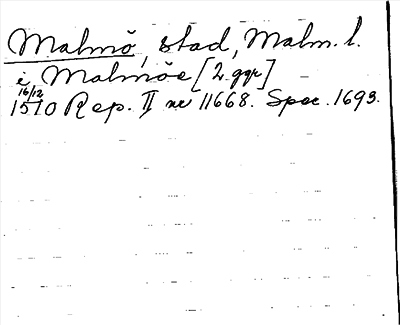 Malmö, stad, Malm. l.
i Malmöe [2 ggr]
16/12
1510 Rep. II nr 11668. Spec. 1693.